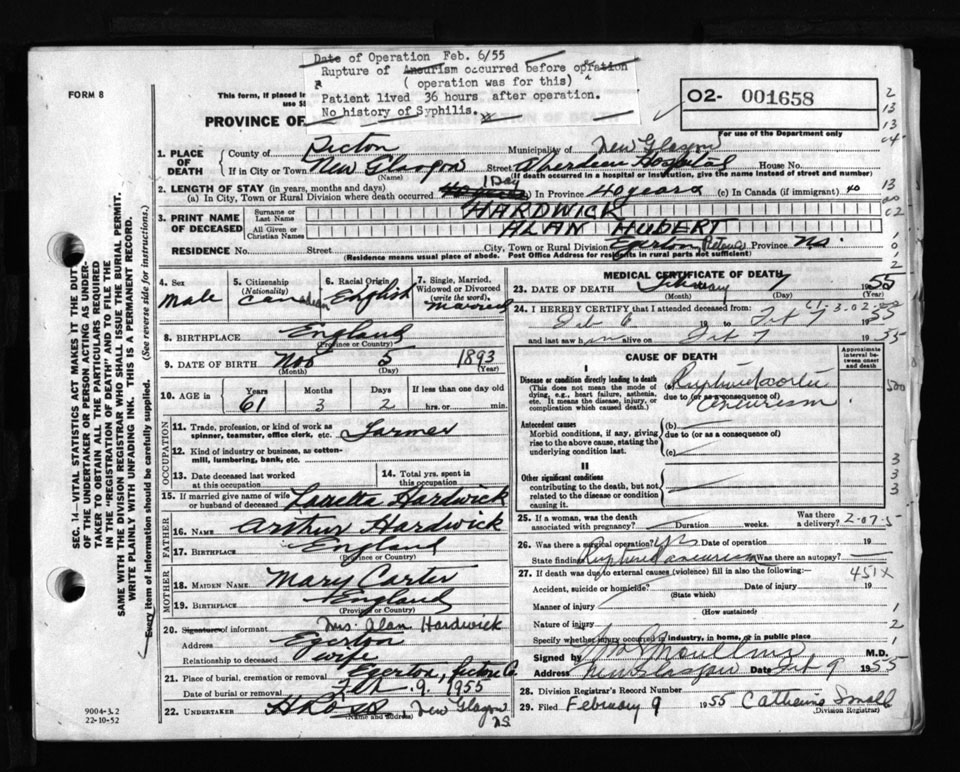 Date of Operation Feb. 6/55
Rupture of Aneurism occurred before opration
( operation was for this)
Patient lived 36 hours after operation.
No history of Syphilis.
FORM 8
This form, if placed in
use
PROVINCE OF
O2- 001658
For use of the Department only
2
13
13
04
13
00
02
1
0
1
2
SEC. 14—VITAL STATISTICS ACT MAKES IT THE DUTY
OF THE UNDERTAKER OR PERSON ACTING AS UNDER-
TAKER TO OBTAIN ALL THE PARTICULARS REQUIRED
IN THE "REGISTRATION OF DEATH" AND TO FILE THE
SAME WITH THE DIVISION REGISTRAR WHO SHALL ISSUE THE BURIAL PERMIT.
WRITE PLAINLY WITH UNFADING INK. THIS IS A PERMANENT RECORD.
Every item of information should be carefully supplied. (See reverse side for instructions.)
1. PLACE OF DEATH
County of Pictou Municipality of New Glasgow
If in City or Town New Glasgow Street Aberdeen Hospital House No.
(Name) (If death occurred in a hospital or institution, give the name instead of street and number)
2. LENGTH OF STAY (in years, months and days) 1 Day
(a) In City, Town or Rural Division where death occurred (b) In Province 40 years (c) In Canada (if immigrant) 40
3. PRINT NAME OF DECEASED
Surname or Last Name HARDWICK
All Given or Christian Names ALAN HUBERT
RESIDENCE No. Street City, Town or Rural Division Egerton Pictou Co Province N.S.
(Residence means usual place of abode. Post Office Address for residents in rural parts not sufficient)
4. Sex Male
5. Citizenship (Nationality) Canadian
6. Racial Origin English
7. Single, Married, Widowed or Divorced (write the word). Married
8. BIRTHPLACE England
(Province or Country)
9. DATE OF BIRTH Nov 5 1893
(Month) (Day) (Year)
10. AGE in Years 61 Months 3 Days 2 If less than one day old hrs. or min.
OCCUPATION
11. Trade, profession, or kind of work as spinner, teamster, office clerk, etc. Farmer
12. Kind of industry or business, as cotton-mill, lumbering, bank, etc.
13. Date deceased last worked at this occupation
14. Total yrs. spent in this occupation
15. If married give name of wife or husband of deceased Loretta Hardwick
FATHER
16. NAME Arthur Hardwick
17. BIRTHPLACE England
(Province or Country)
MOTHER
18. MAIDEN NAME Mary Carter
19. BIRTHPLACE England
(Province or Country)
20. Signature of informant Mrs. Alan Hardwick
Address Egerton
Relationship to deceased wife
21. Place of burial, cremation or removal Egerton, Pictou Co.
Date of burial or removal Feb. 9. 1955
22. UNDERTAKER H Ross, New Glasgow N.S.
(Name and address)
9004-3.2
22-10-52
MEDICAL CERTIFICATE OF DEATH
23. DATE OF DEATH February 7 1955
(Month) (Day) (Year)
24. I HEREBY CERTIFY that I attended deceased from:
Feb 6 19 to Feb 7 1955
and last saw him alive on Feb 7 1955
CAUSE OF DEATH
Approximate interval between onset and death
I
Disease or condition directly leading to death
(This does not mean the mode of dying, e.g., heart failure, asthenia, etc. It means the disease, injury, or complication which caused death.)
(a) Ruptured aortic
due to (or as a consequence of)
aneurism
500
Antecedent causes
Morbid conditions, if any, giving rise to the above cause, stating the underlying condition last.
(b)
due to (or as a consequence of)
(c)
II
Other significant conditions
contributing to the death, but not related to the disease or condition causing it.
3
3
3
25. If a woman, was the death associated with pregnancy? Duration weeks. Was there a delivery?
2-07-5
26. Was there a surgical operation? yes Date of operation 19
State findings Ruptured aneurism Was there an autopsy?
27. If death was due to external causes (violence) fill in also the following:—
451X
Accident, suicide or homicide? Date of injury 19
(State which)
Manner of injury
(How sustained)
1
Nature of injury
2
Specify whether injury occurred in industry, in home, or in public place
1
Signed by M.D.
Address New Glasgow Date Feb 9 1955
28. Division Registrar's Record Number
29. Filed February 9 1955 Catherine Small
(Division Registrar)